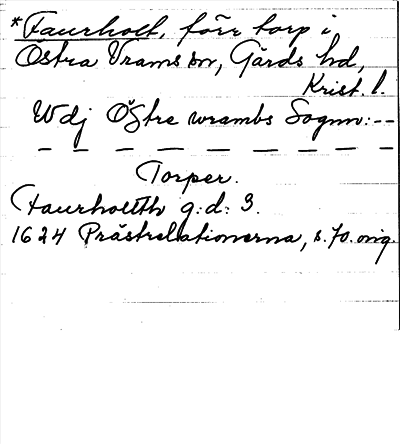 *Faurholt, förr torp i
Östra Vrams sn, Gärds hd,
Krist. l.
Wdj Østre wrambs Sognn: --
— — — — — — — — —
Torper.
Faurholtth g: d: 3.
1624 Prästrelationerna, s. 70. orig.